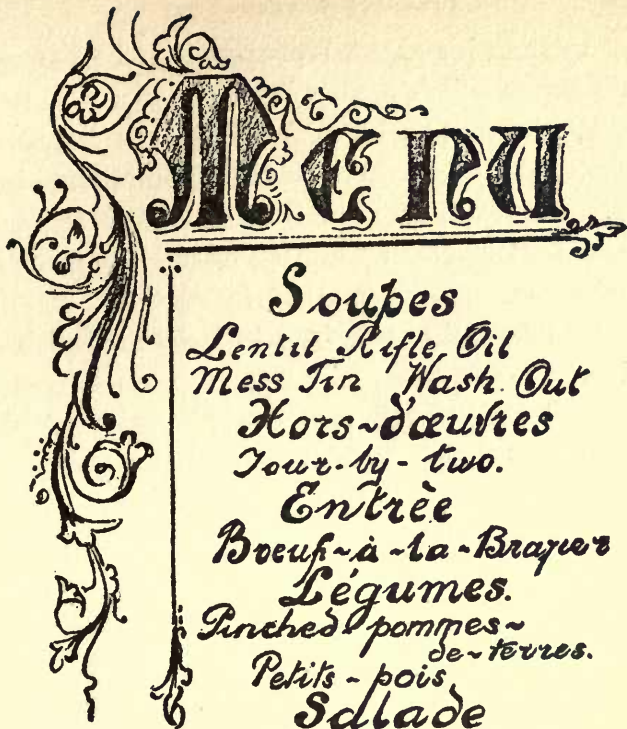 Menu
Soupes
Lentil Rifle Oil
Mess Tin Wash Out
Hors~d'œuvres
Four-by-two.
Entrèe
Boeuf~à~la~Brazier
Légumes.
Pinched-pommes~
de~terres.
Petits-pois
Salade